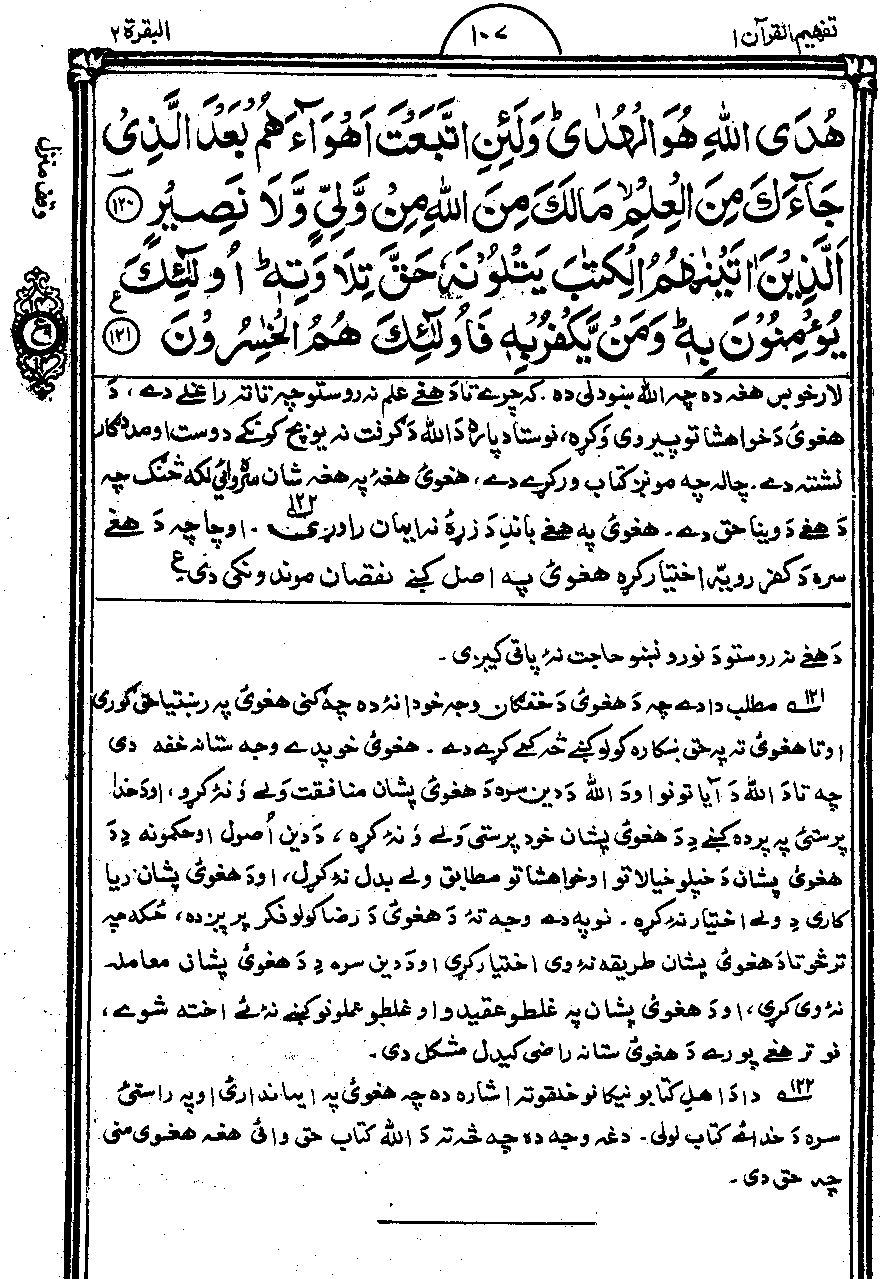 تفہیم القرآن ۱
۱۰۷
البقرة ۲
هُدَى اللّٰهِ هُوَ الْهُدٰىؕ وَلَئِنِ اتَّبَعْتَ اَهْوَآءَهُمْ بَعْدَ الَّذِيْ
جَآءَكَ مِنَ الْعِلْمِۙ مَالَكَ مِنَ اللّٰهِ مِنْ وَّلِيٍّ وَّلَا نَصِيْرٍ ۝۱۲۰
اَلَّذِيْنَ اٰتَيْنٰهُمُ الْكِتٰبَ يَتْلُوْنَهٗ حَقَّ تِلَاوَتِهٖؕ اُولٰٓئِكَ
يُؤْمِنُوْنَ بِهٖؕ وَمَنْ يَّكْفُرْ بِهٖ فَاُولٰٓئِكَ هُمُ الْخٰسِرُوْنَ ۝۱۲۱ ع
وقف منزل
لار خو بس هغه ده چه الله ښودلی ده. که چرے تا دَ هغے علم نه روستو چه تا ته راغلے دے، دَ
هغوئ دَ خواهشاتو پیروی وَکړه، نو ستا دپاره دَ الله دَ گرفت نه یو بچ کونکے دوست او مددگار
نشته دے. چا له چه مونږ کتاب ورکړے دے، هغوئ هغهٔ په هغه شان سره وائی لکه څنګ چه
دَ هغے دَ وینا حق دے. هغوئ په هغے باندِ دَ زړهٔ نه ایمان راوړی ۱۲۲. او چا چه دَ هغے
سره دَ کفر رویّه اختیار کړه هغوئ په اصل کښے نقصان موندونکی دی ع
دَ هغے نه روستو دَ نورو نښو حاجت نهٔ پاقی کیږی.
۱۲۱ مطلب دا دے چه دَ هغوئ دَ خفگان وجه خو دا نهٔ ده چه ګنی هغوئ په رښتیا حق ګوری
او تا هغوئ ته په حق ښکاره کولو کښے څه کمے کړے دے. هغوئ خو پدے وجه ستا نه خفه دی
چه تا دَ الله دَ آیاتونو او دَ الله دَ دین سره دَ هغوئ پشان منافقت ولے وُ نهٔ کړو، او دَ خدا
پرستئ په پرده کښے دِ دَ هغوئ پشان خود پرستی ولے وُ نهٔ کړه، دَ دین اُصول او حکمونه دِ دَ
هغوئ پشان دَ خپلو خیالاتو او خواهشاتو مطابق ولے بدل نهٔ کړل، او دَ هغوئ پشان ریا
کاری دِ ولے اختیار نهٔ کړه. نو په دے وجه تهٔ دَ هغوئ دَ رضا کولو فکر پریږده، ځکه چه
تر څو تا دَ هغوئ پشان طریقه نهٔ وی اختیار کړی او دَ دین سره دِ دَ هغوئ پشانی معامله
نهٔ وی کړی، او دَ هغوئ پشان په غلطو عقیدو او غلطو عملونو کښے نهٔ ئے اخته شوے،
نو تر هغے پورے دَ هغوئ ستا نه راضی کیدل مشکل دی.
۱۲۲ دا دَ اهلِ کتابو نیکانو خلقو ته اشاره ده چه هغوئ په ایماندارئ او په راستئ
سره دَ خدائے کتاب لولی. دغه وجه ده چه څه ته دَ الله کتاب حق وائی هغه هغوی منی
چه حق دی.